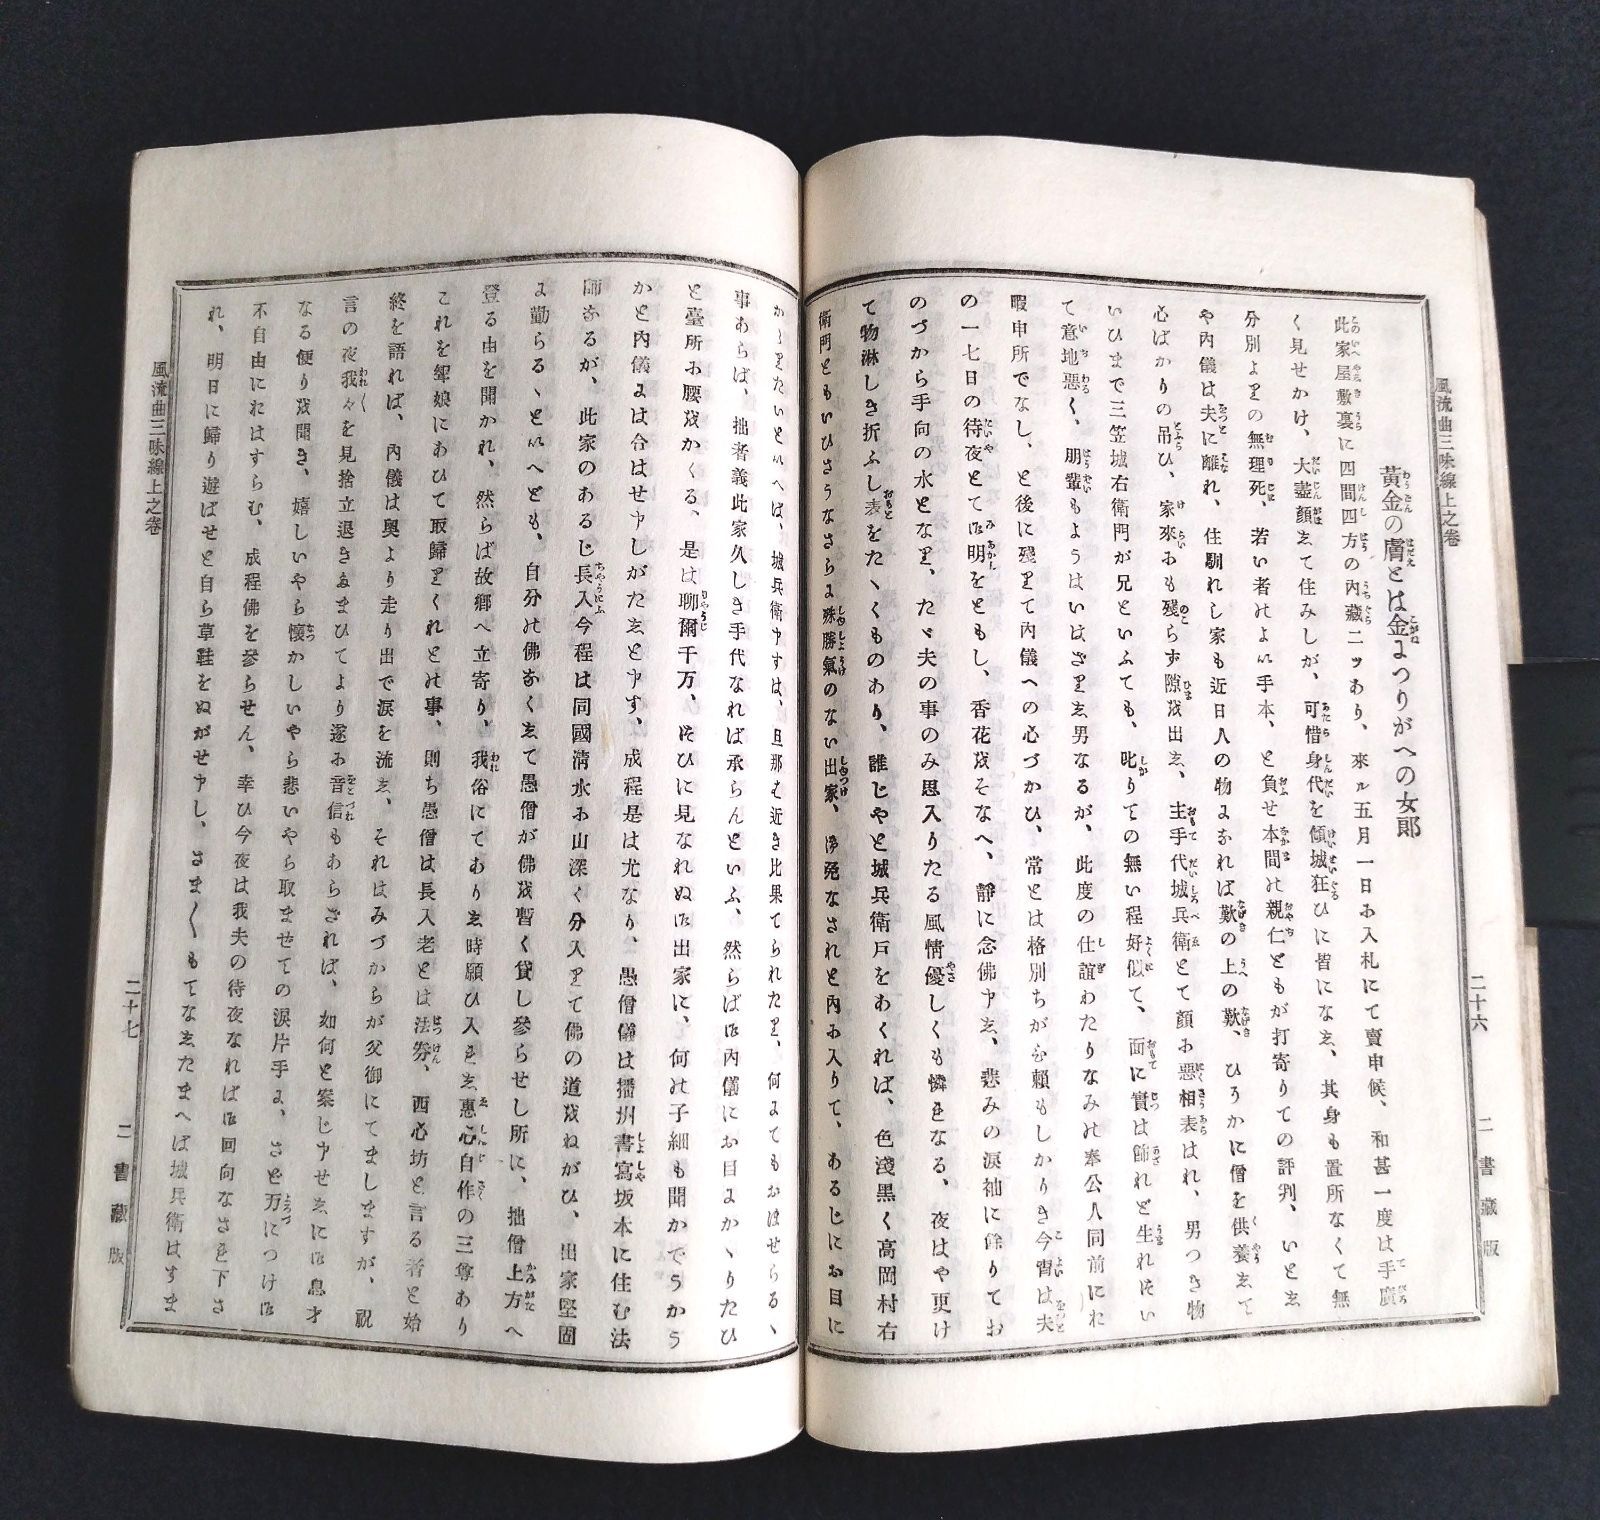 風流曲三味線上之卷
二十六
二書藏版
黃金の膚とは金まつりがへの女郎
此家屋敷裏に四間四方の內藏二ッあり、來ル五月一日に入札にて賣申候、和甚一度は手廣
く見せかけ、大盡顏して住みしが、可惜身代を傾城狂ひに皆になし、其身も置所なくて無
分別よりの無理死、若い者のよい手本、と負せ本間の親仁ともが打寄りての評判、いとし
や內儀は夫に離れ、住馴れし家も近日人の物になれば歎の上の歎、ひろかに僧を供養して
心ばかりの吊ひ、家來にも殘らず隙を出し、主手代城兵衛とて顏に惡相表はれ、男つき物
いひまで三笠城右衛門が兄といふても、叱りての無い程好似て、面に實は飾れど生れつい
て意地惡く、朋輩もようはいはざりし男なるが、此度の仕誼わたりなみの奉公人同前にわ
暇申所でなし、と後に殘りて內儀への心づかひ、常とは格別ちがひ賴もしかりき今宵は夫
の一七日の待夜とて御明をともし、香花をそなへ、靜に念佛申し、悲みの淚袖に餘りてお
のづから手向の水となり、たゞ夫の事のみ思入りたる風情優しくも憐となる、夜はや更け
て物淋しき折ふし表をたゝくものあり、誰じやと城兵衛戶をあくれば、色淺黑く高岡村右
衛門ともいひさうなさらに殊勝氣のない出家、御免なされと內に入りて、あるじにお目に
かゝりたいといへば、城兵衛申すは、旦那も近き比果てられたり、何にてもおほせらるゝ
事あらば、拙者義此家久しき手代なれば承らんといふ、然らば御內儀にお目にかゝりたひ
と臺所に腰をかくる、是は聊爾千万、つひに見なれぬ御出家に、何の子細も聞かでうかう
かと內儀には合はせ申しがたしと申す、成程是は尤なり、愚僧儀は播州書寫坂本に住む法
師なるが、此家のあるじ長入今程は同國淸水に山深く分入りて佛の道をねがひ、出家堅固
に勤らるゝといへども、自分の佛なくして愚僧が佛を暫く貸し參らせし所に、拙僧上方へ
登る由を聞かれ、然らば故鄕へ立寄り、我俗にてありし時願ひ入とし惠心自作の三尊あり
これを聟娘にあひて取歸りくれとの事、則ち愚僧は長入老とは法券、西心坊と言る者と始
終を語れば、內儀は奧より走り出で淚を流し、それはみづからが父御にてましますが、祝
言の夜我々を見捨立退きたまひてより遂に音信もあらざれば、如何と案じ申せしに御息才
なる便りを聞き、嬉しいやら懷かしいやら悲いやら取ませての淚片手に、さと万につけ御
不自由にわはすらむ、成程佛を參らせん、幸ひ今夜は我夫の待夜なれば御回向なさと下さ
れ、明日に歸り遊ばせと自ら草鞋をぬがせ申し、さま〲もてなしたまへば城兵衛はすま
風流曲三味線上之卷
二十七
二書藏版